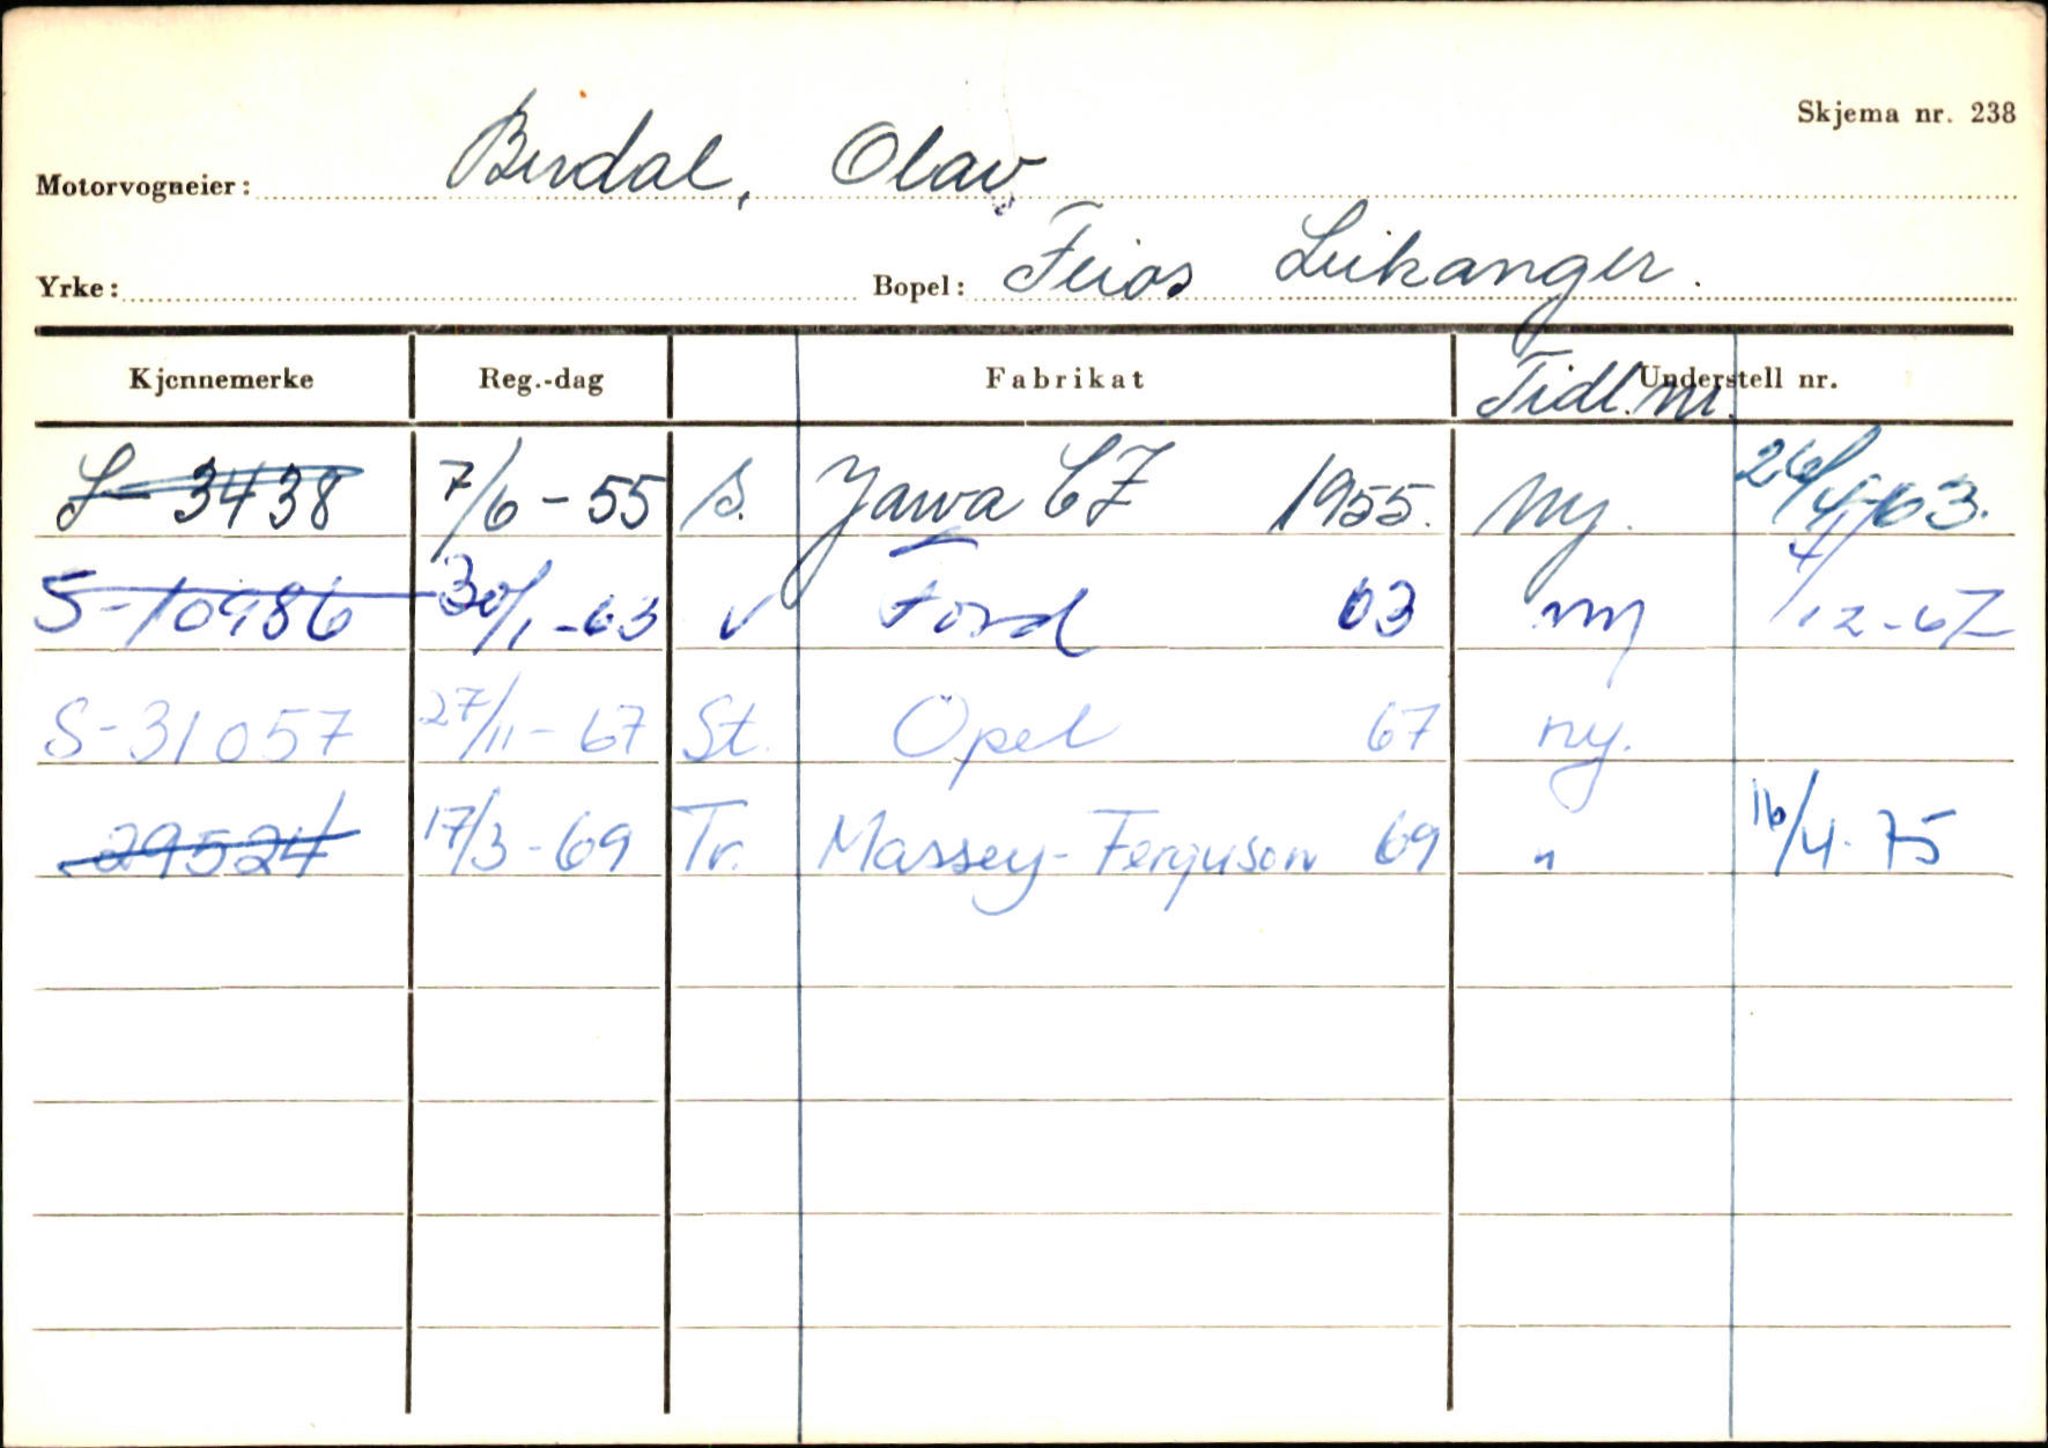 Skjema nr. 238
Motorvogneier: Berdal, Olav
Yrke: Bopel: Feios Leikanger.
Kjennemerke Reg.-dag Fabrikat Tidl. nr. Understell nr.
S-3438 7/6-55 s. Jawa CZ 1955. Ny. 26/4-63.
S-10986 30/1-63 v Ford 63 ny 4/12-67
S-31057 27/11-67 St. Opel 67 ny.
29524 17/3-69 Tr. Massey-Ferguson 69 " 16/4-75